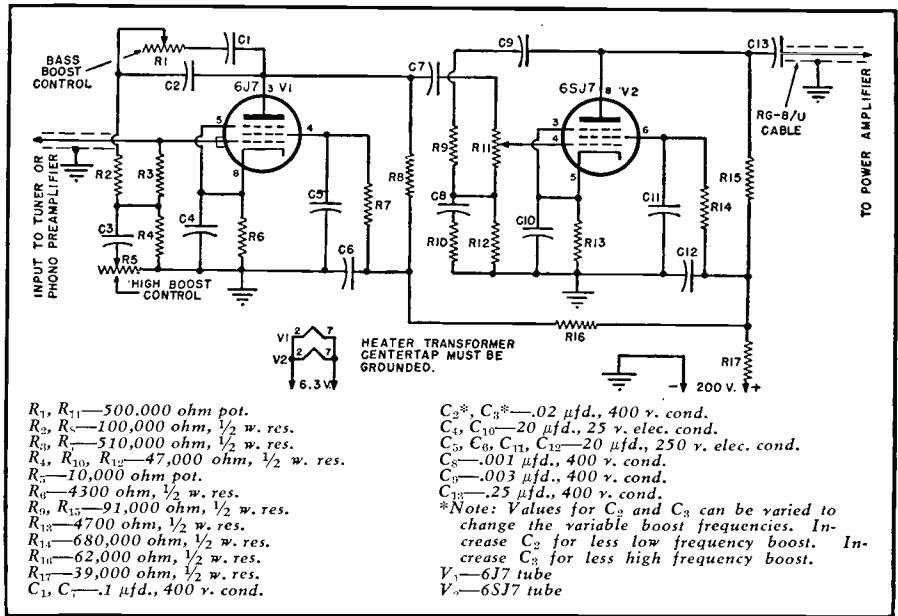 BASS BOOST
CONTROL
R1
C1
C2
6J7
3
V1
5
4
8
R2
R3
C3
R4
C4
R6
C5
R7
C6
R8
R5
HIGH BOOST
CONTROL
INPUT TO TUNER OR
PHONO PREAMPLIFIER
C7
C9
6SJ7
8
V2
3
4
6
5
R9
R11
C8
R10
R12
C10
R13
C11
R14
C12
R15
C13
RG-8/U
CABLE
TO POWER AMPLIFIER
R16
R17
V1
2
7
V2
2
7
6.3 V.
HEATER TRANSFORMER
CENTERTAP MUST BE
GROUNDED.
- 200 V. +
R1, R11—500.000 ohm pot.
R2, R8—100,000 ohm, 1/2 w. res.
R3, R7—510,000 ohm, 1/2 w. res.
R4, R10, R12—47,000 ohm, 1/2 w. res.
R5—10,000 ohm pot.
R6—4300 ohm, 1/2 w. res.
R9, R15—91,000 ohm, 1/2 w. res.
R13—4700 ohm, 1/2 w. res.
R14—680,000 ohm, 1/2 w. res.
R16—62,000 ohm, 1/2 w. res.
R17—39,000 ohm, 1/2 w. res.
C1, C7—.1 µfd., 400 v. cond.
C2*, C3*—.02 µfd., 400 v. cond.
C4, C10—20 µfd., 25 v. elec. cond.
C5, C6, C11, C12—20 µfd., 250 v. elec. cond.
C8—.001 µfd., 400 v. cond.
C9—.003 µfd., 400 v. cond.
C13—.25 µfd., 400 v. cond.
*Note: Values for C2 and C3 can be varied to
change the variable boost frequencies. In-
crease C2 for less low frequency boost. In-
crease C3 for less high frequency boost.
V1—6J7 tube
V2—6SJ7 tube